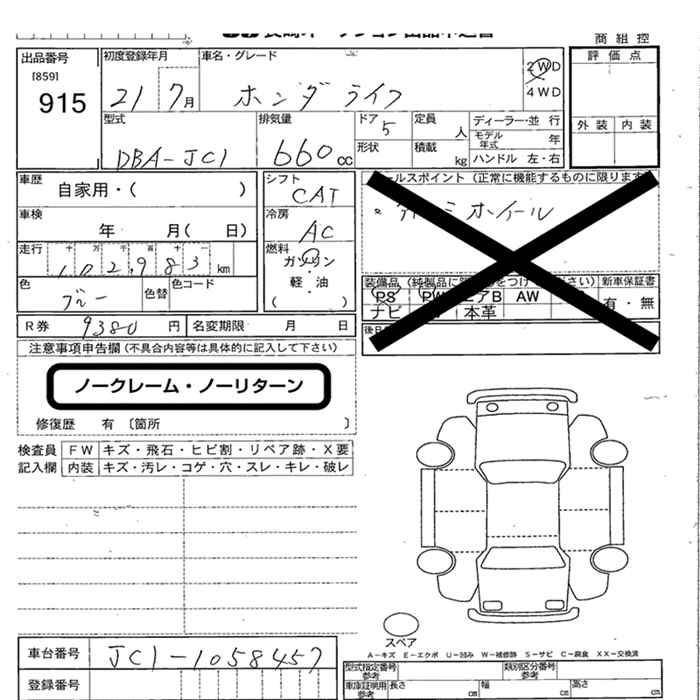 商 組 控
出品番号
[859]
915
初度登録年月
21 7月
車名・グレード
ホンダ ライフ
2WD
4WD
評 価 点
外 装 内 装
型式
DBA-JC1
排気量
660 cc
ドア 5
形状
定員 人
積載 kg
ディーラー・並 行
モデル年式 年
ハンドル 左・右
車歴
自家用・( )
車検
年 月( 日)
走行 十 万 千 百 十 一
102,983 km
色
ブルー
色替
色コード
シフト
CAT
冷房
AC
燃料
ガソリン
軽・油
( )
ールスポイント (正常に機能するものに限ります
ホイール
装備品
新車保証書
PS PW エアB AW
ナビ 本革
有・無
R券 9380 円 名変期限 月 日
注意事項申告欄 (不具合内容等は具体的に記入して下さい)
ノークレーム・ノーリターン
修復歴 有 〔箇所 〕
検査員
記入欄
FW キズ・飛石・ヒビ割・リペア跡・X要
内装 キズ・汚レ・コゲ・穴・スレ・キレ・破レ
スペア
A-キズ E-エクボ U-凹み W-補修跡 S-サビ C-腐食 XX-交換済
車台番号 JC1-1058457
登録番号
型式指定番号 参考
類別区分番号 参考
車庫証明用 参考 長さ cm 幅 cm 高さ cm